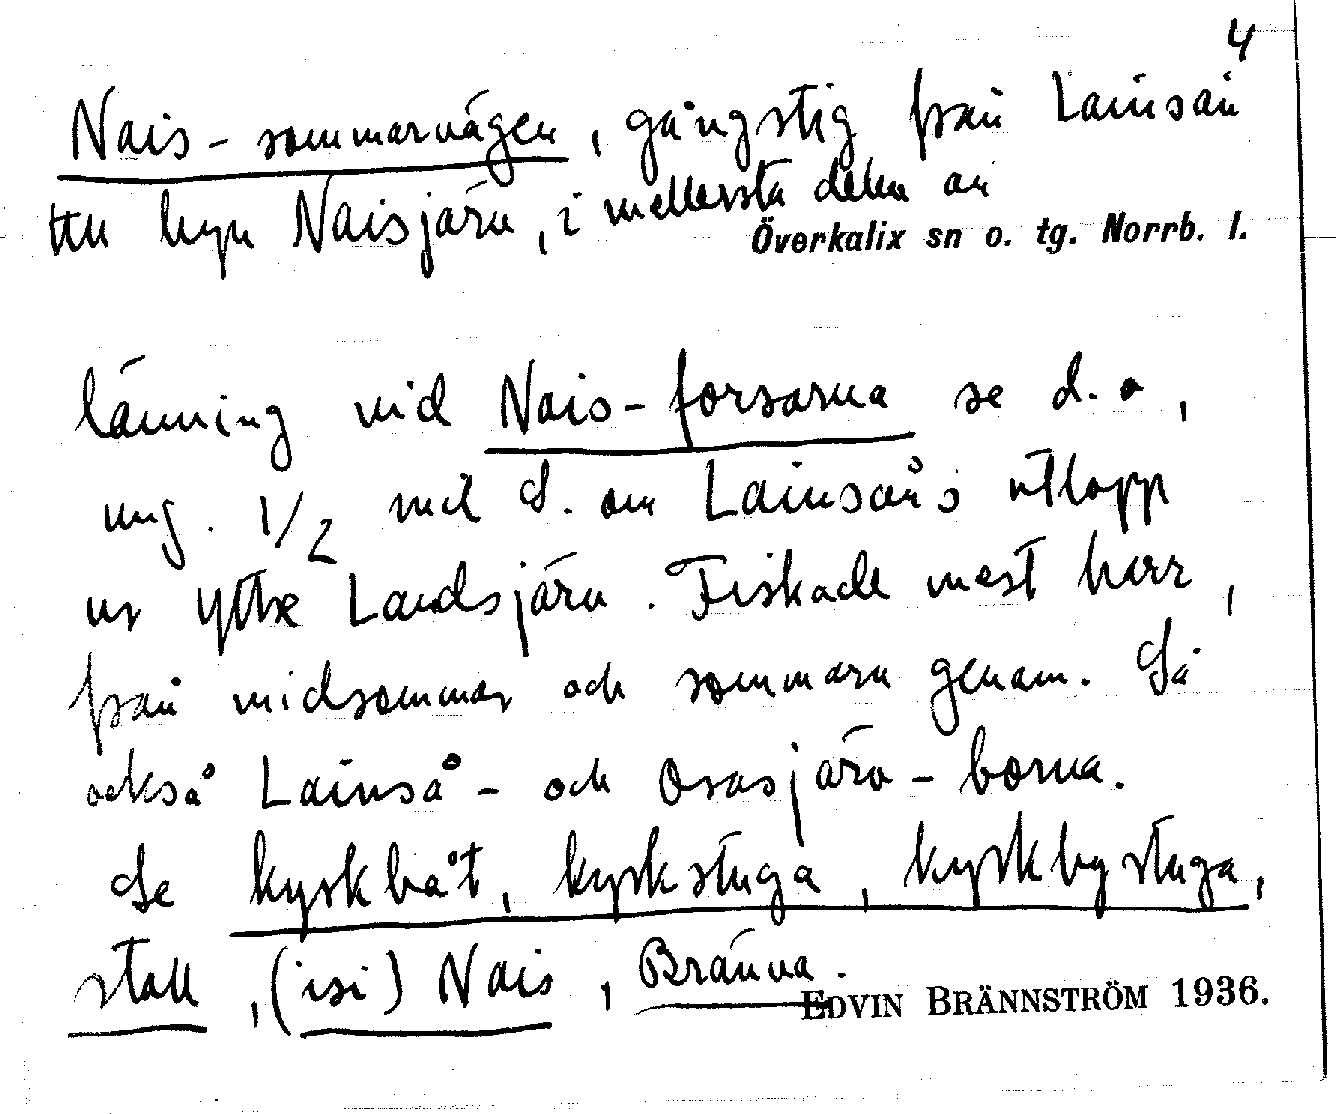 4
Nais-sommarvägen, gångstig från Lainsån
till byn Naisjärn, i mellersta delen av
Överkalix sn o. tg. Norrb. l.
länning vid Nais-forsarna se d.o,
ung. 1/2 mil S. om Lainsån's utlopp
ur yttre Landsjärn. Fiskade mest harr,
från midsommar och sommarn genom. Så
också Lainså- och Orasjärv-borna.
Se kyrkbåt, kyrkstuga, kyrkbystuga,
stall, (isi) Nais, Bränna.
EDVIN BRÄNNSTRÖM 1936.